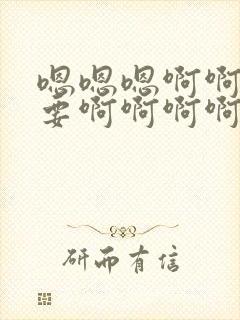 嗯嗯嗯啊啊
要啊啊啊啊
研而有信